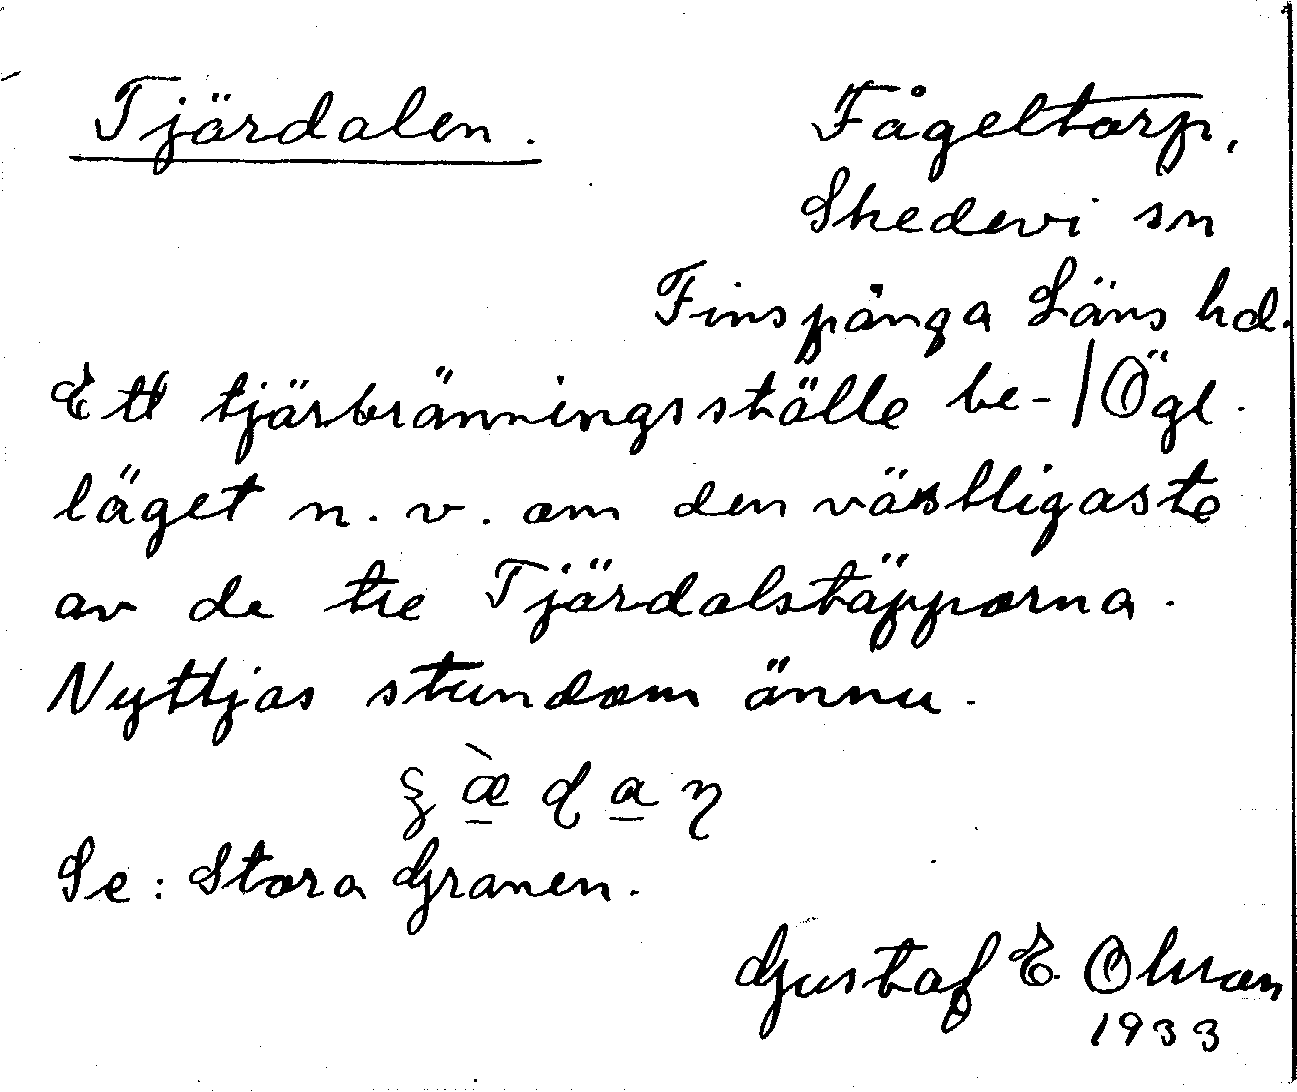 Tjärdalen. Fågeltorp,
Skedevi sn
Finspånga Läns hd.
Ett tjärbränningsställe be- / Ögl.
läget n. v. om den västligaste
av de tre Tjärdalstäpporna.
Nyttjas stundom ännu.
Se: Stora Granen.
Gustaf E. Olsson
1933